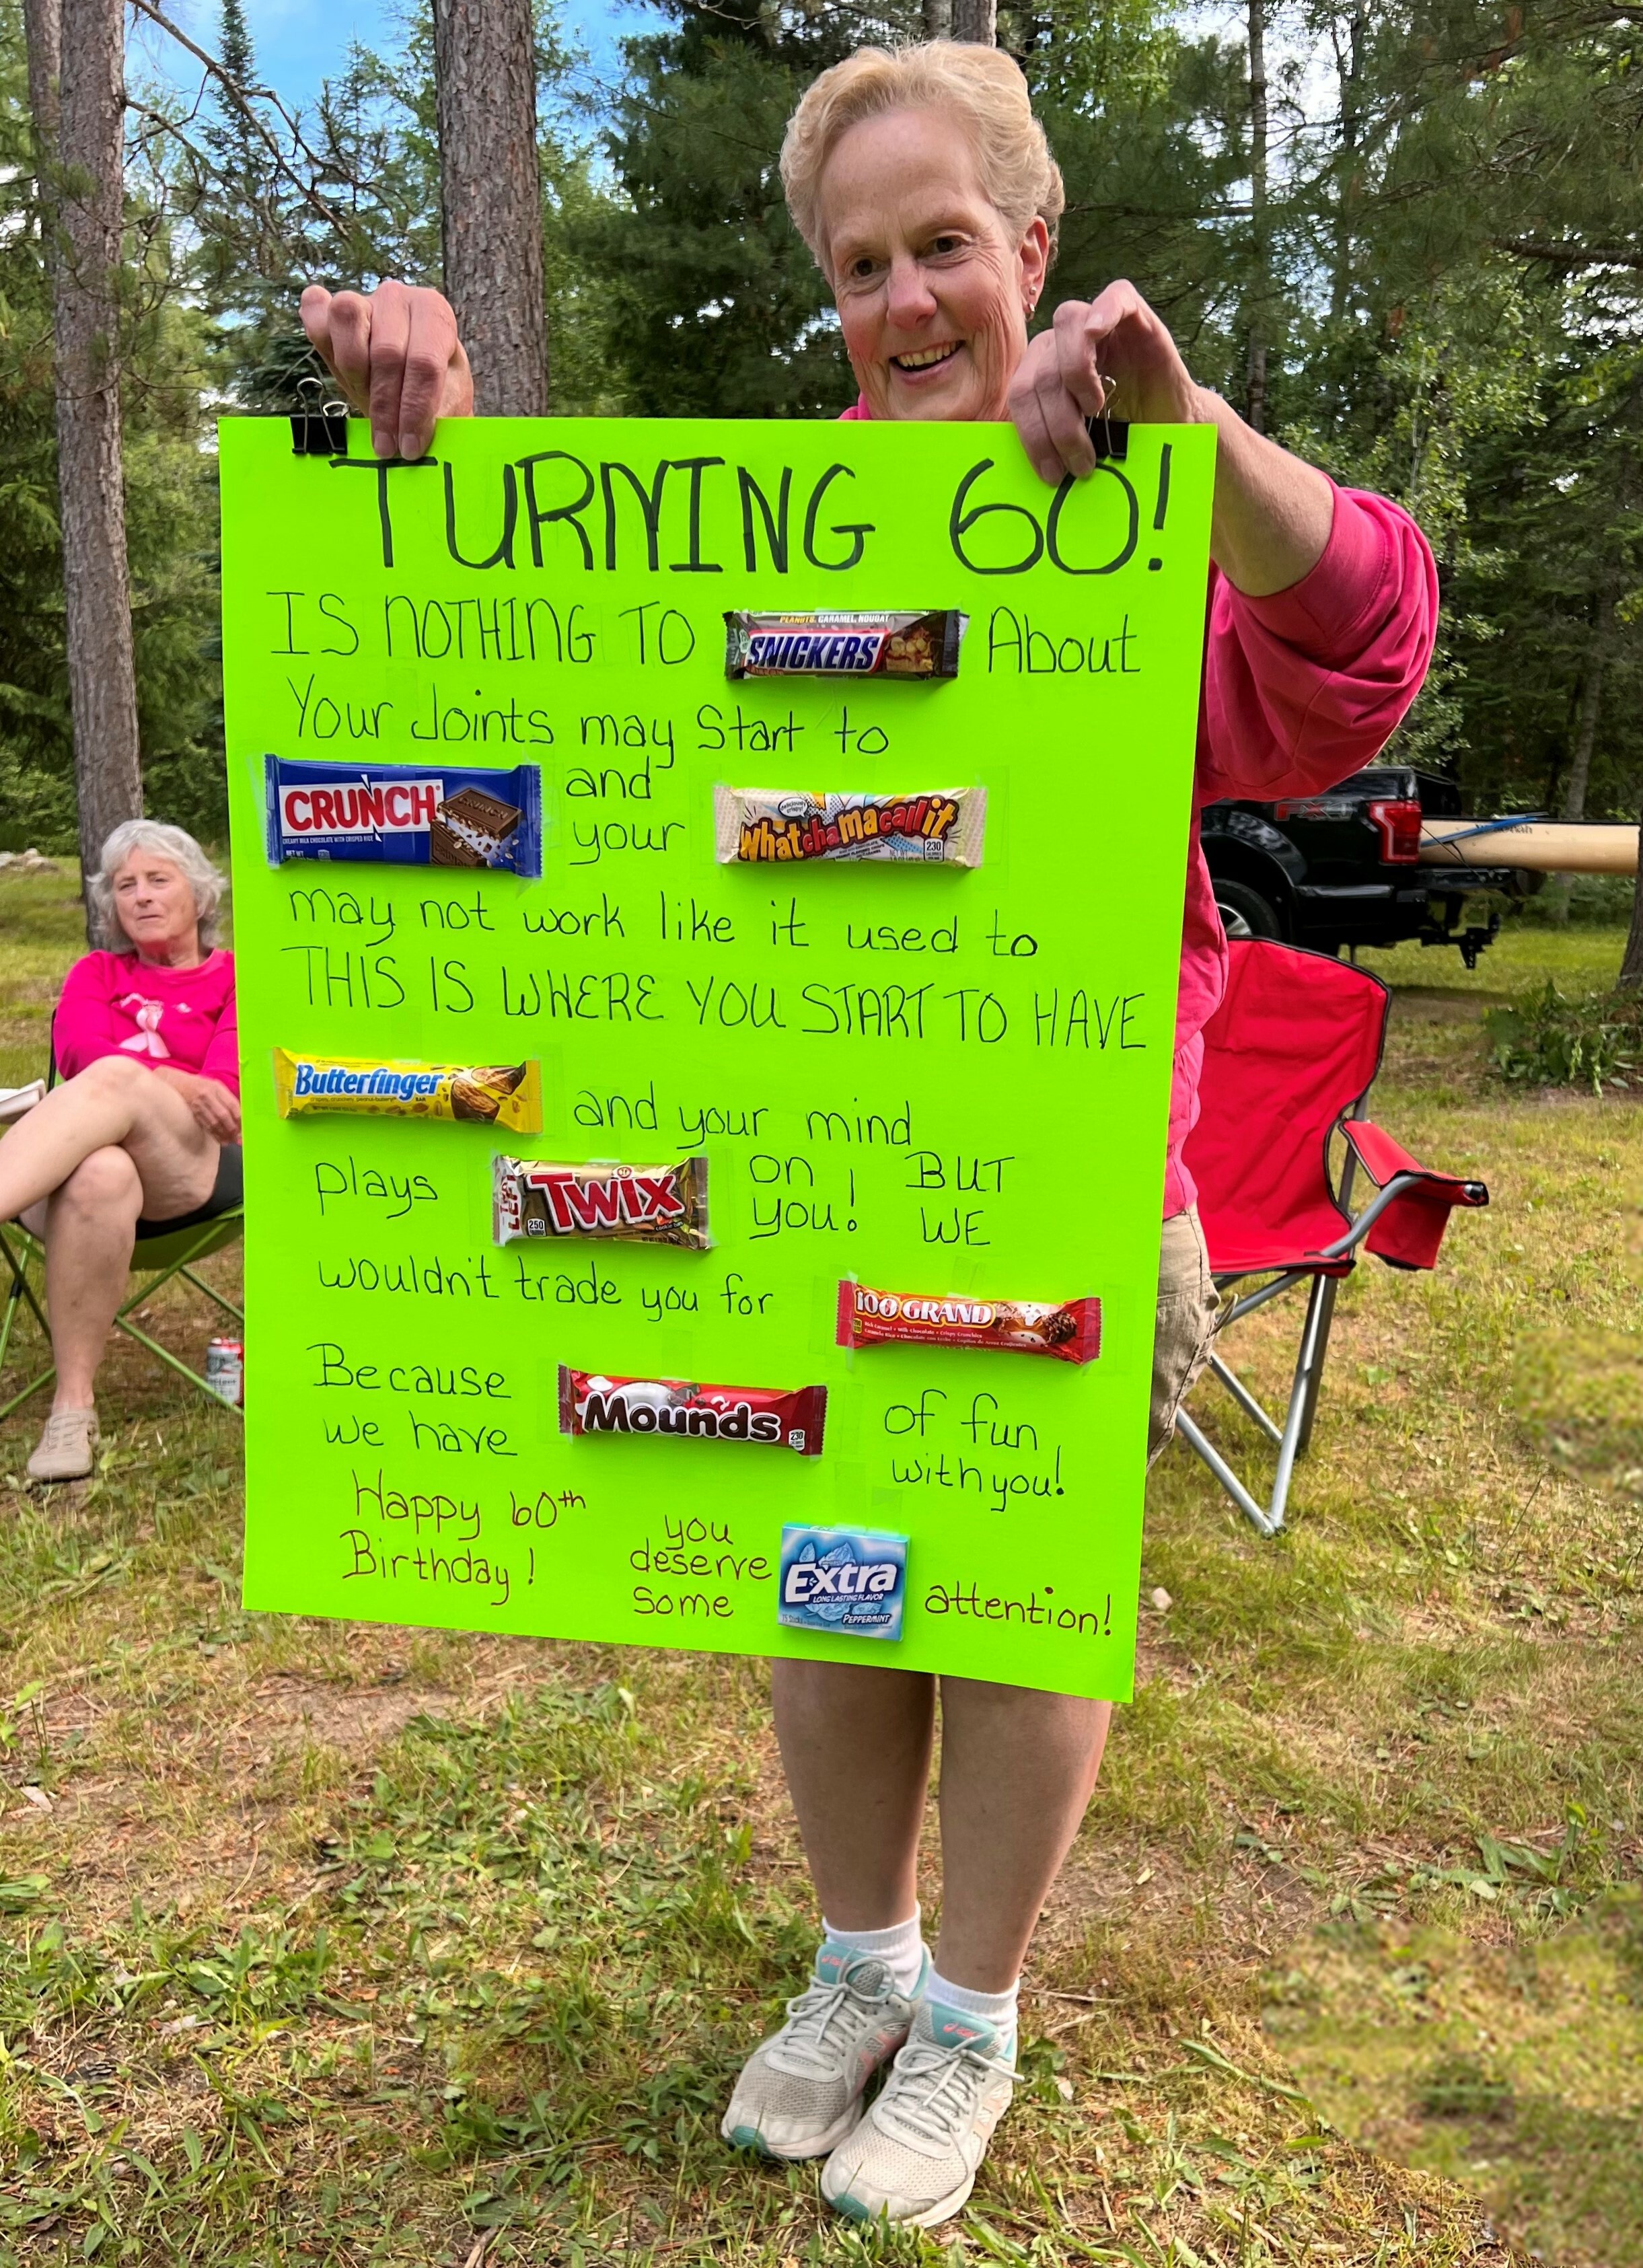 TURNING 60!
IS NOTHING TO SNICKERS About
PEANUTS, CARAMEL, NOUGAT
Your Joints may Start to
CRUNCH and your Whatchamacallit
CREAMY MILK CHOCOLATE WITH CRISPED RICE
230
may not work like it used to
THIS IS WHERE YOU START TO HAVE
Butterfinger and your mind
BAR
plays TWIX on you! BUT WE
LEFT
250
wouldn't trade you for 100 GRAND
Because we have Mounds of fun with you!
230
Happy 60th Birthday!
you deserve some Extra attention!
LONG LASTING FLAVOR
PEPPERMINT
FX4